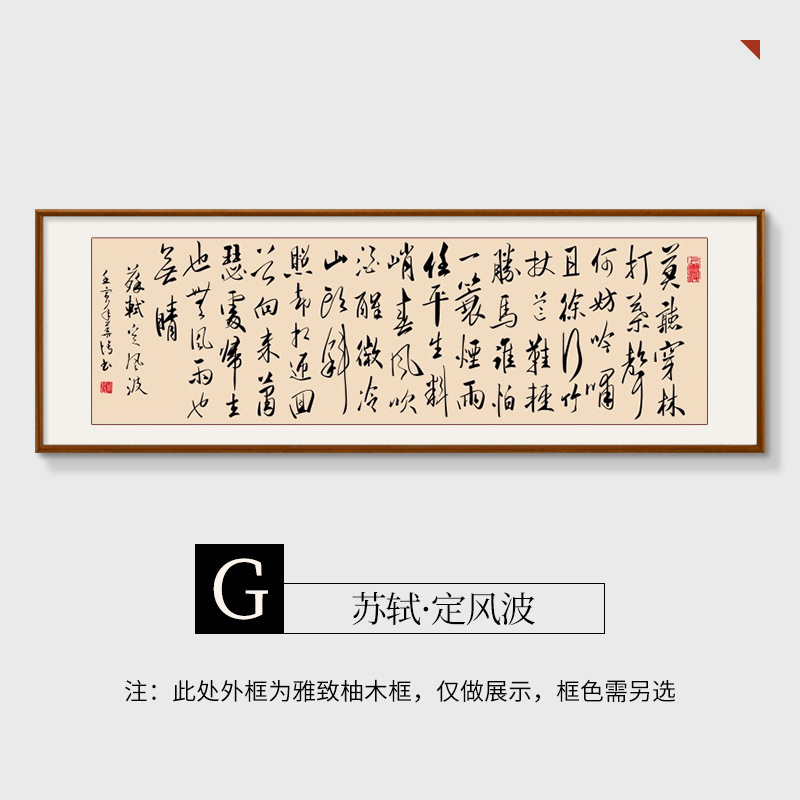 莫聽穿林
打葉聲
何妨吟嘯
且徐行竹
杖芒鞋輕
勝馬誰怕
一蓑煙雨
任平生料
峭春風吹
酒醒微冷
山頭斜
照却相迎回
首向来蕭
瑟處歸去
也無風雨也
无晴
蘇軾定風波
壬寅年
G
苏轼·定风波
注：此处外框为雅致柚木框，仅做展示，框色需另选